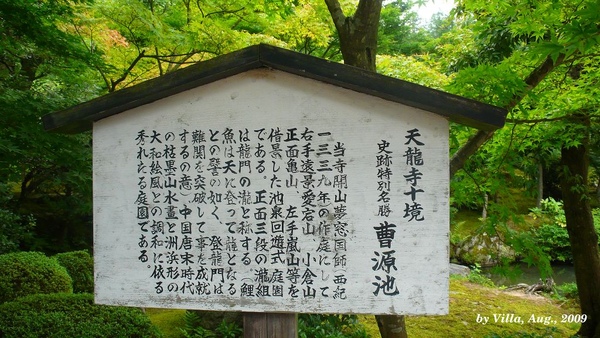 天龍寺十境
史跡特別名勝 曹源池
当寺開山夢窓国師西紀
一三三九年の作庭にして
右手遠景愛宕山、小倉山
正面亀山、左手嵐山等を
借景した池泉回遊式庭園
である。正面三段の瀧組
は龍門の瀧と称する。鯉
魚は天に登って龍となる
との譬の如く、登龍門は
難関を突破して事を成就
するの意。中国唐宋時代
の枯墨山水畫と洲浜形の
大和絵風との調和に依る
秀れたる庭園である。
by Villa, Aug., 2009